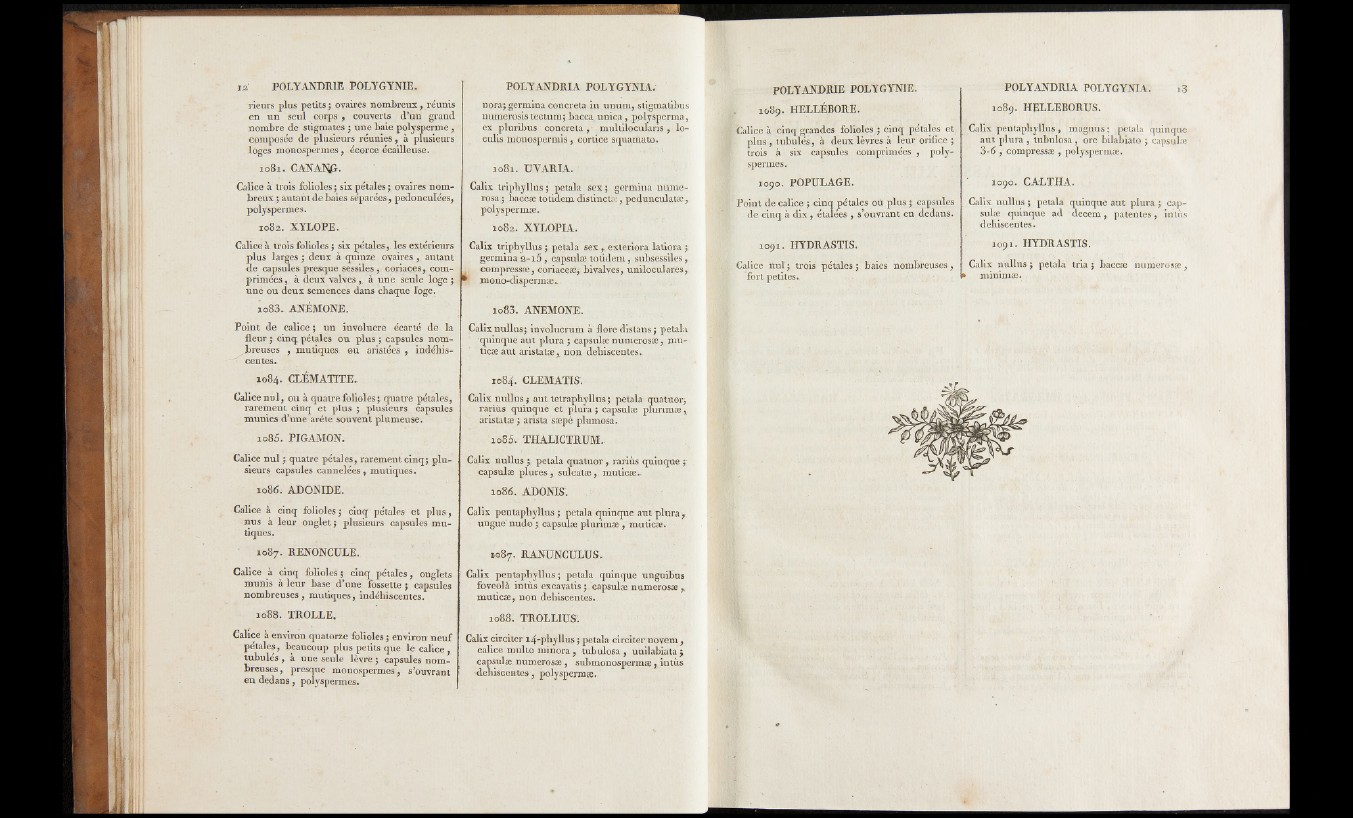 12 POLYANDRIE POLYGYNIE.
rieurs plus petits ; ovaires nombreux , réunis
en un seul corps , couverts d'un grand
nombre de stigmates ; une baie polysperme ,
composée de plusieurs réunies , à plusieurs
loges monospermes , écorce écailleuse.
1081. CANANG.
Calice à trois folioles ; six pétales ; ovaires nom-
breux ; autant de baies séparées , pedonculées,
polyspermes.
1082. XYLOPE.
Calice à trois folioles ; six pétales, les extérieurs
plus larges ; deux à quinze ovaires , autant
de capsules presque sessiles , coriaces, com-
primées , à deux valves , à une seule loge ;
une ou deux semences dans chaque loge.
1083. ANÉMONE.
Point de calice ; un involucre écarté de la
fleur ; cinq pétales ou plus ; capsules nom-
breuses , mutiques ou aristées , indéhis-
centes.
1084. CLÉMATITE.
Calice nul, ou à quatre folioles ; quatre pétales,
rarement cinq et plus ; plusieurs capsules
munies d'une arête souvent plumeuse.
1085. PIGAMON.
Calice nul ; quatre pétales, rarement cinq ; plu-
sieurs capsules cannelées , mutiques.
1086. ADONIDE.
Calice à cinq folioles ; cinq pétales et plus,
nus à leur onglet ; plusieurs capsules mu-
tiques.
1087. RENONCULE.
Calice à cinq folioles ; cinq pétales , onglets
munis à leur base d'une fossette ; capsules
nombreuses , mutiques, indéhiscentes.
1088. TROLLE.
Calice à environ quatorze folioles ; environ neuf
pétales, beaucoup plus petits que le calice ,
tubulés , à une seule lèvre ; capsules nom-
breuses, presque monospermes , s'ouvrant
en dedans , polyspermes.
POLYANDRIA POLYGYNIA.
nora; germina concreta in unum, stigmatibus
numerosis tectum; bacca unica , polysperma,
ex pluribus concreta , multilocularis , lo-
culis monospermis , cortice squamato.
1081. UVARIA.
Calix triphyllus ; petala sex ; germina nume-
rosa ; baccæ totidem distinctæ , pedunculatæ ,
polyspermæ.
1082. XYLOPIA.
Calix triphyllus ; petala sex , exteriora latiora ;
germina 2-15 , capsulæ totidem , subsessiles ,
compressæ, coriaceæ, bivalves, uniloculares,
mono-dispermæ.
1083. ANEMONE.
Calix nullus; involucrum à flore distans ; petala
quinque aut plura ; capsulæ numerosæ, mu-
ticæ aut aristatæ, non dehiscentes.
1084. CLEMATIS.
Calix nullus ; aut tetraphyllus ; petala quatuor,
rarius quinque et plura ; capsulæ plurimæ,
aristatæ ; arista sæpè plumosa.
1085. THALICTRUM.
Calix nullus ; petala quatuor , rariùs quinque ;
capsulæ plures , sulcatæ , muticæ.
1086. ADONIS.
Calix pentaphyllus ; petala quinque aut plura,
ungue nudo ; capsulæ plurimæ , muticæ.
1087. RANUNCULUS.
Calix pentaphyllus ; petala quinque unguibus
foveolâ intùs excavatis ; capsulæ numerosæ ,
muticæ, non dehiscentes.
1088. TROLLIUS.
Calix circiter 14-phyllus ; petala circiter novem ,
calice multo minora , tubulosa , unilabiata ;
capsulæ numerosæ , submonospermæ , intùs
dehiscentes , polyspermæ.
POLYANDRIE POLYGYNIE.
1089. HELLÉBORE.
Calice à cinq grandes folioles ; cinq pétales et
plus , tubulés, à deux lèvres à leur orifice ;
trois à six capsules comprimées , poly-
spermes.
1090. POPULAGE.
Point de calice ; cinq pétales ou plus ; capsules
de cinq à dix , étalées , s'ouvrant en dedans.
1091. HYDRASTIS.
Calice nul ; trois pétales ; baies nombreuses ,
fort petites.
POLYANDRIA POLYGYNIA. 13
1089. HELLEBORUS.
Calix pentaphyllus , magnus ; petala quinque
aut plura , tubulosa , ore bilabiato ; capsulæ
3-6 , compressæ , polyspermæ.
1090. CALTHA.
Calix nullus ; petala quinque aut plura ; cap-
sulæ quinque ad decem , patentes , intùs
dehiscentes.
1091. HYDRASTIS.
Calix nullus ; petala tria ; baccæ numerosæ ,
minimæ.